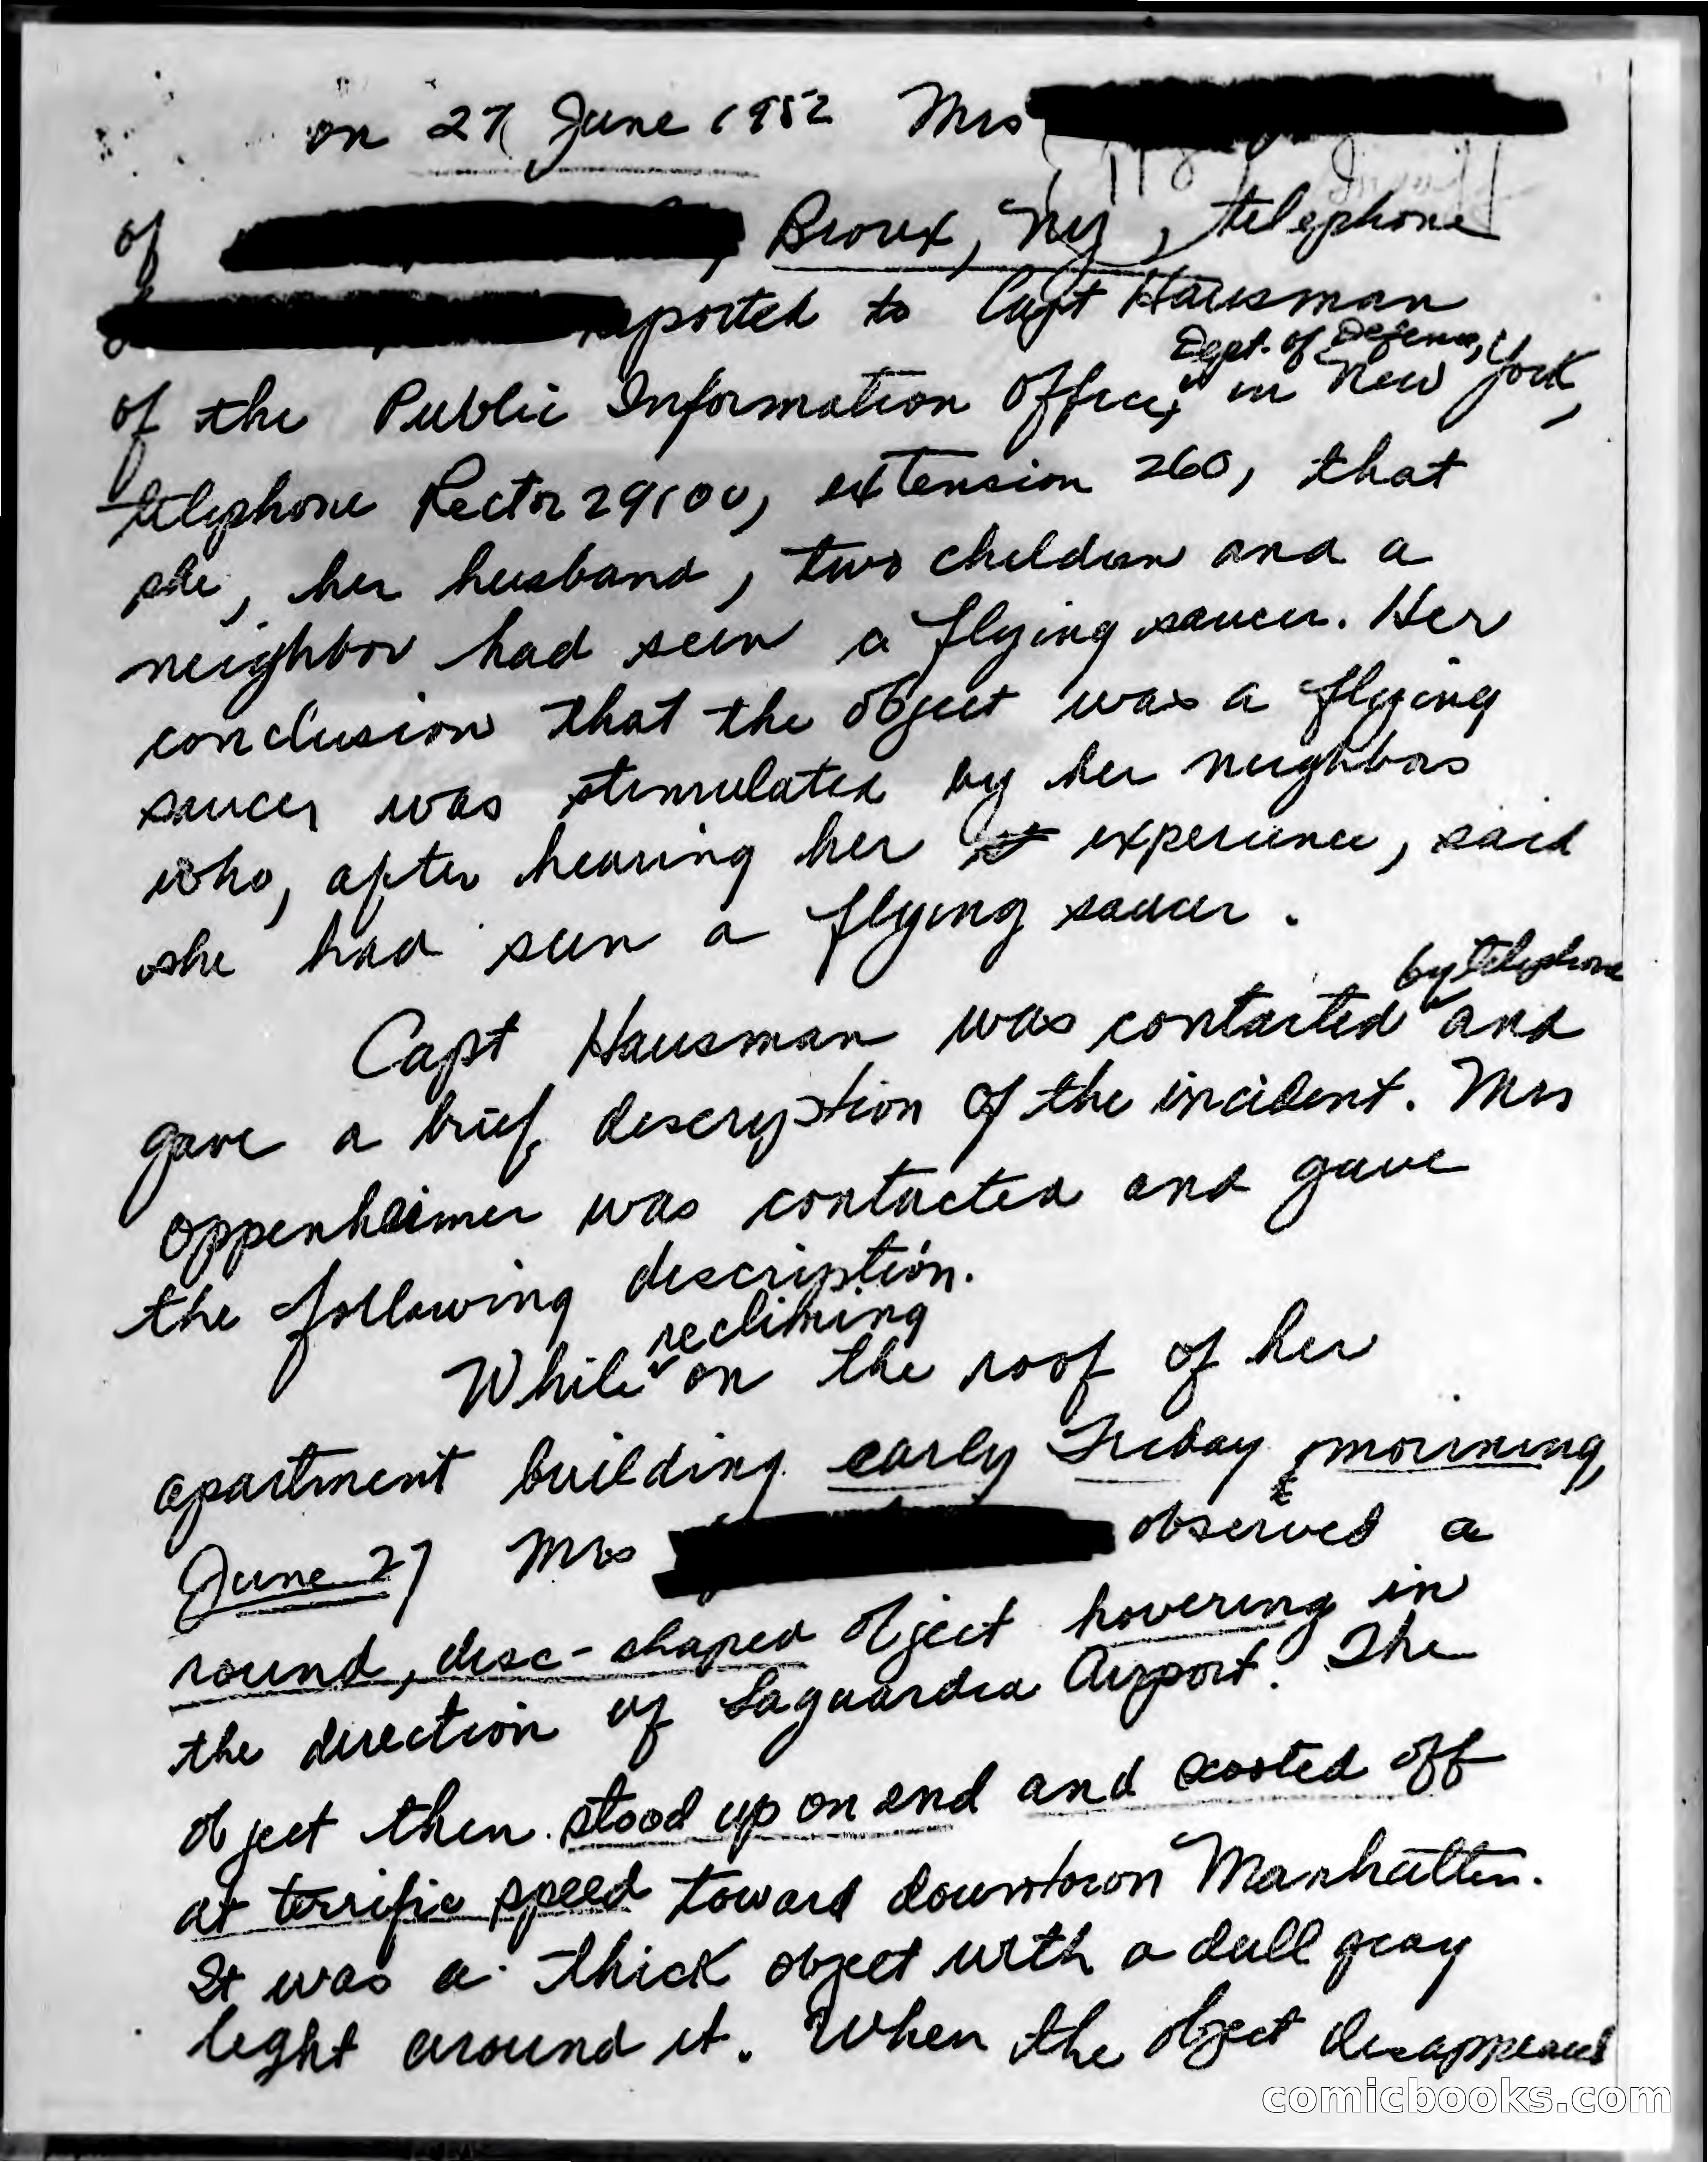 on 27 June 1952 Mrs
of Bronx, Ny, telephone
reported to Capt Hausman
of the Public Information Office, Dept. of Defense, in New York,
telephone Rector 29100, extension 260, that
she, her husband, two children and a
neighbor had seen a flying saucer. Her
conclusion that the object was a flying
saucer was stimulated by her neighbors
who, after hearing her experience, said
she had seen a flying saucer.
Capt Hausman was contacted by telephone and
gave a brief description of the incident. Mrs
Oppenheimer was contacted and gave
the following description.
While reclining on the roof of her
apartment building early Friday morning,
June 27 Mrs observed a
round, disc-shaped object hovering in
the direction of Laguardia Airport. The
object then stood up on end and scooted off
at terrific speed toward downtown Manhatten.
It was a thick object with a dull gray
light around it. When the object disappeared
comicbooks.com